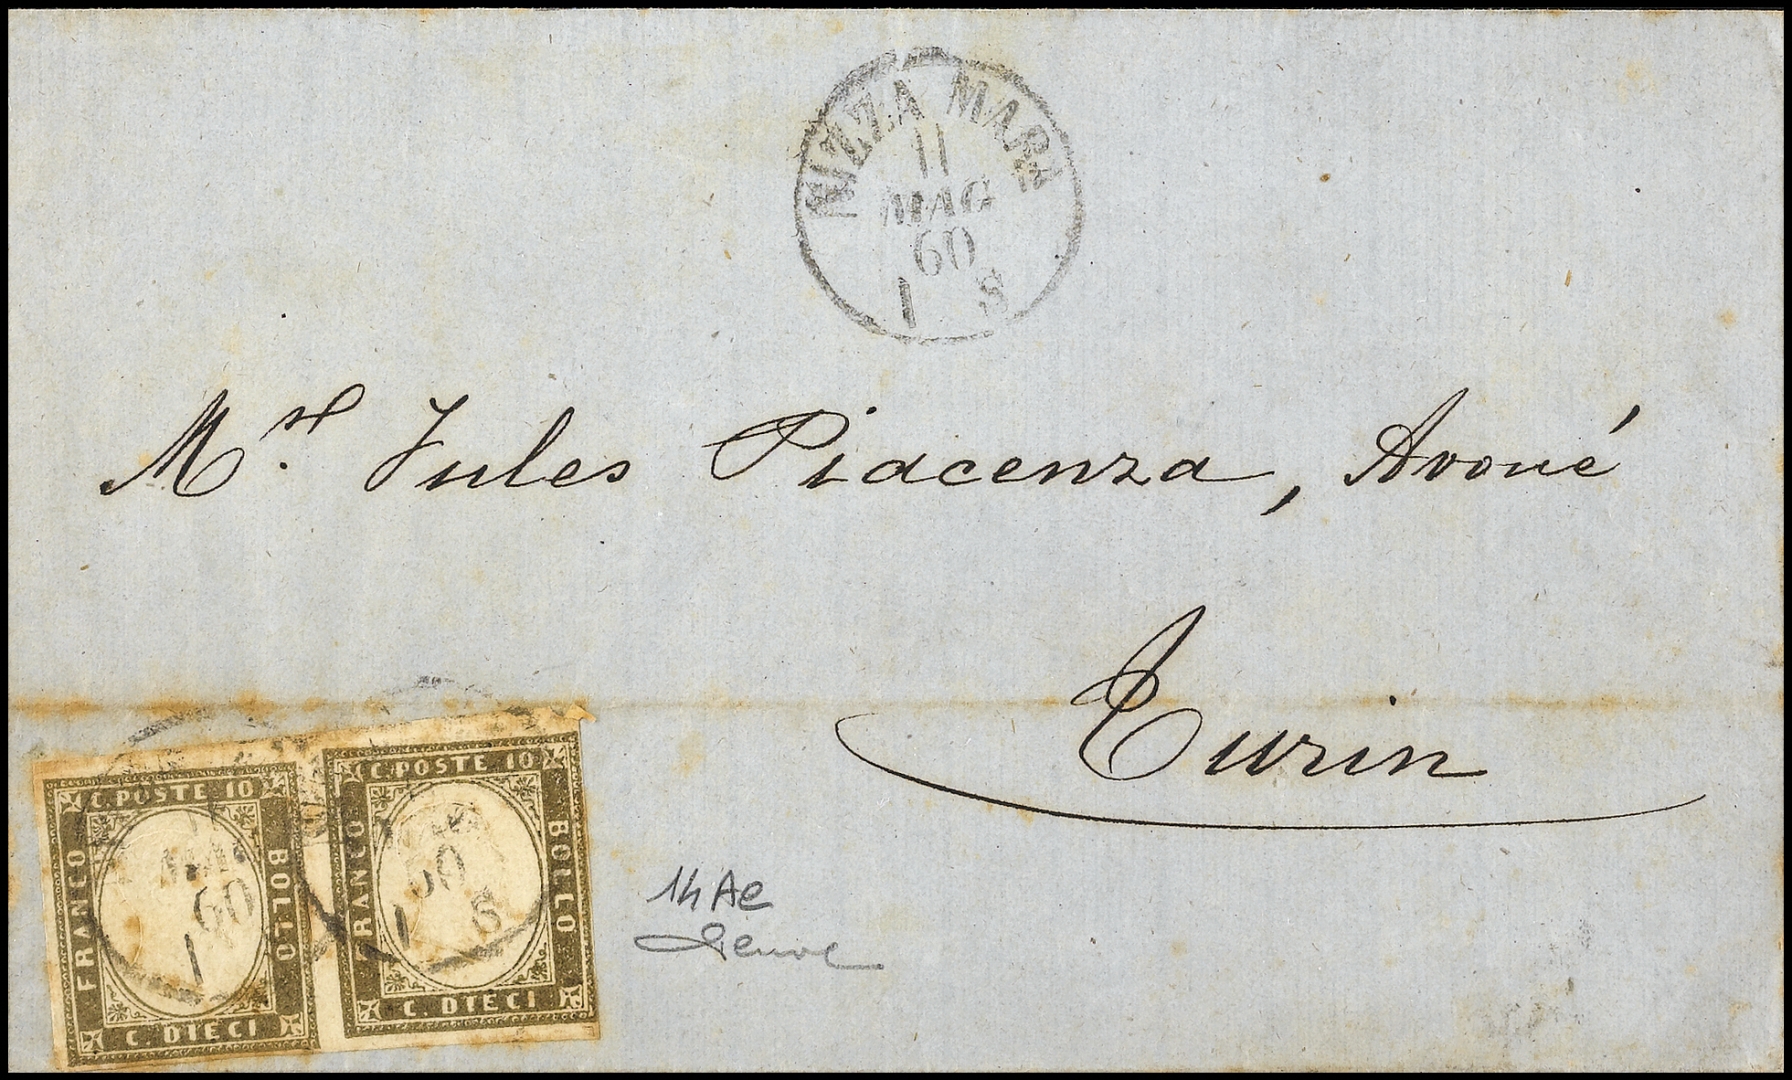 NIZZA MARA
11
MAG
60
1 S
Mr. Jules Piacenza, Avoué
Turin
C. POSTE 10
FRANCO
BOLLO
C. DIECI
60
1
C. POSTE 10
FRANCO
BOLLO
C. DIECI
60
1 S
14 Ae